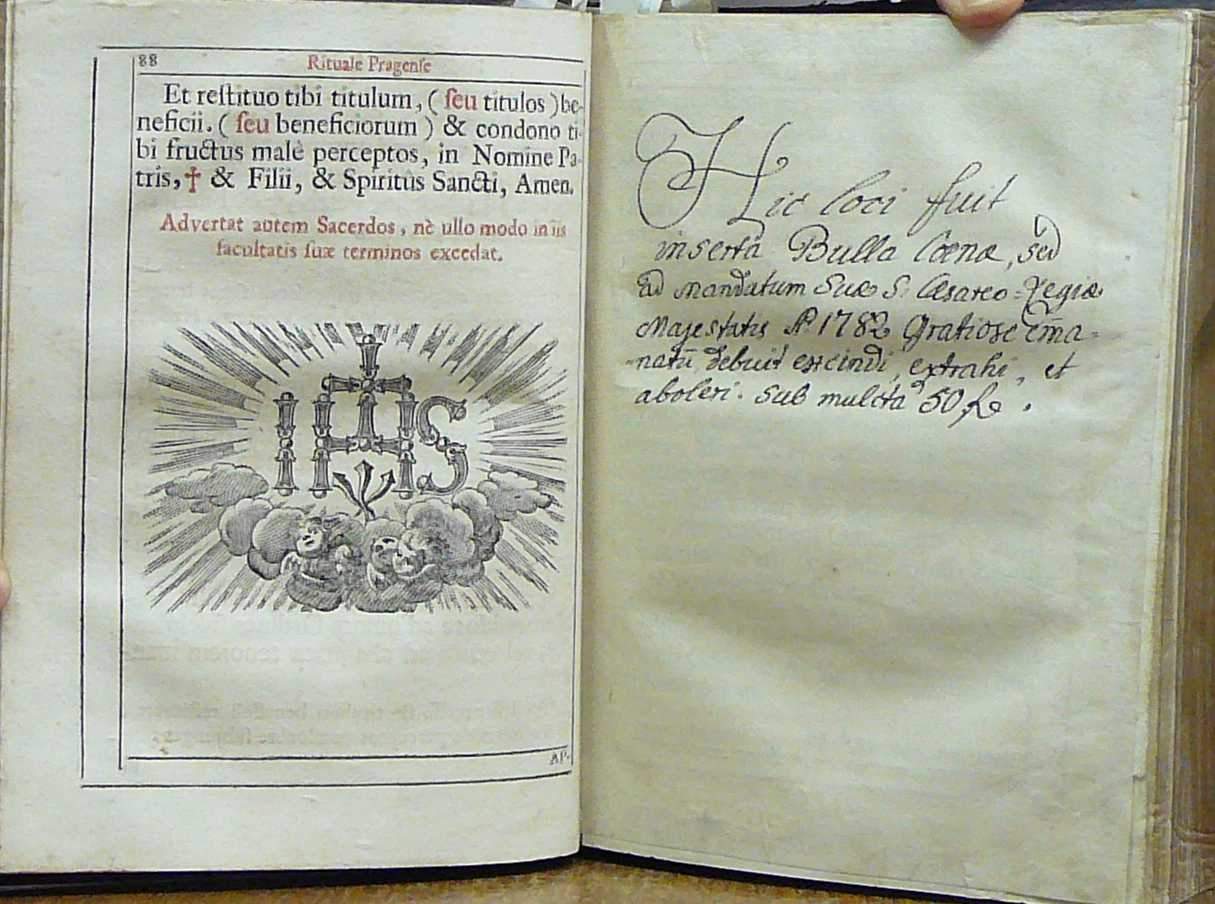 88
Rituale Pragense
Et reſtituo tibi titulum, ( ſeu titulos ) be-
neficii. ( ſeu beneficiorum ) & condono ti-
bi fructus malè perceptos, in Nomine Pa-
tris, † & Filii, & Spiritûs Sancti, Amen.
Advertat autem Sacerdos, nè ullo modo in iis
facultatis ſuæ terminos excedat.
IHS
AP-
Hic loci fuit
inserta Bulla Cœnæ, sed
ad mandatum Suæ S. Cæsareo = Regiæ
Majestatis A̅ 1782 Gratiose Ema̅=
natu̅ debuit exscindi, extrahi, et
aboleri. Sub mulcta 50 fl.